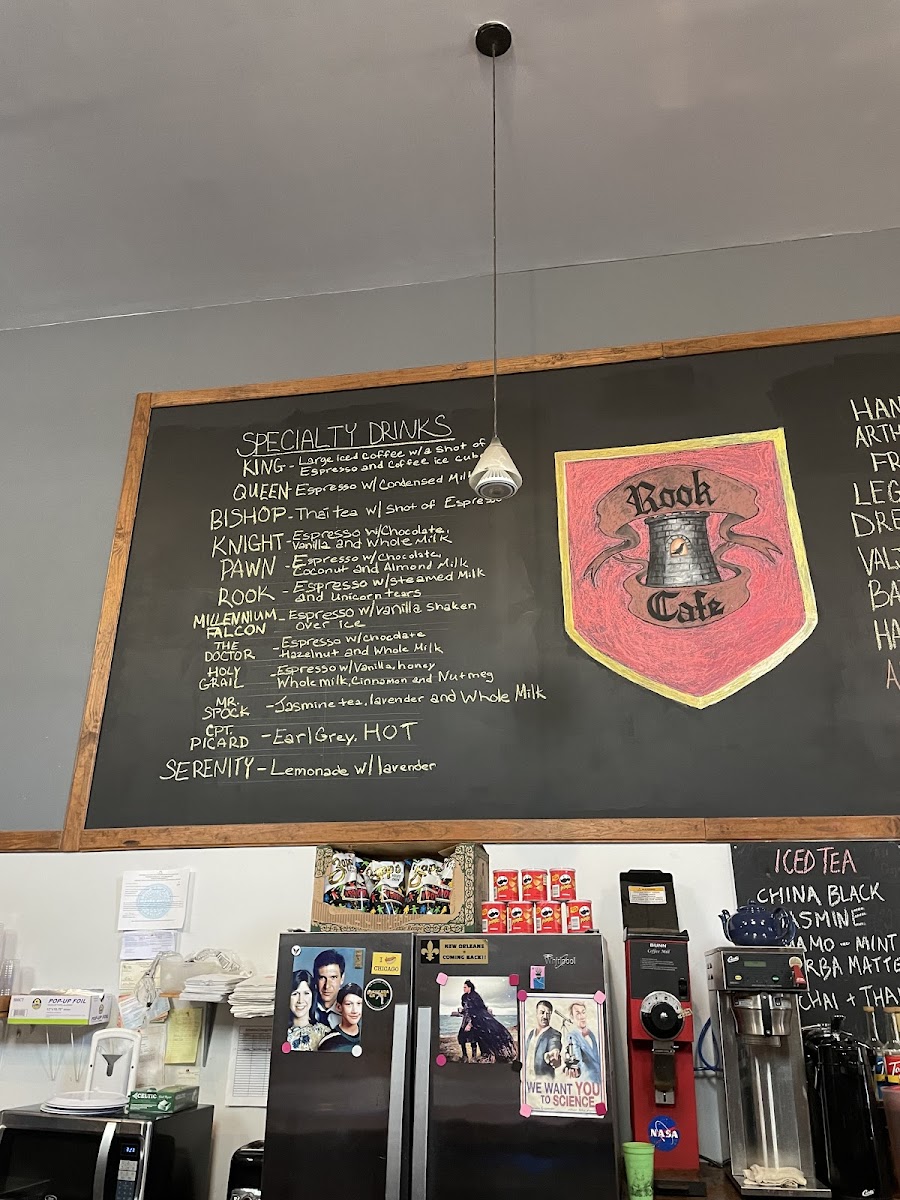 SPECIALTY DRINKS
KING - Large Iced Coffee w/a Shot of
Espresso and Coffee ice cub
QUEEN - Espresso w/Condensed Milk
BISHOP - Thai tea w/ Shot of Espresso
KNIGHT - Espresso w/Chocolate,
Vanilla and Whole Milk
PAWN - Espresso w/Chocolate,
Coconut and Almond Milk
ROOK - Espresso w/steamed Milk
and Unicorn tears
MILLENNIUM FALCON - Espresso w/vanilla Shaken
over ice
THE DOCTOR - Espresso w/chocolate
Hazelnut and Whole Milk
HOLY GRAIL - Espresso w/Vanilla, honey
Whole milk, Cinnamon and Nutmeg
MR. SPOCK - Jasmine tea, lavender and Whole Milk
CPT. PICARD - Earl Grey, HOT
SERENITY - Lemonade w/ lavender
Rook
Cafe
HAN
ARTH
FR
LEG
DRE
VALJ
BA
HA
A
ICED TEA
CHINA BLACK
JASMINE
AMO - MINT
RBA MATTE
CHAI + THA
Zapp's
Pringles
BUNN
Coffee Mill
Curtis
POP-UP FOIL
CELTIC
NEW ORLEANS
COMING BACK!!
I
CHICAGO
Whirlpool
WE WANT YOU
TO SCIENCE
NASA